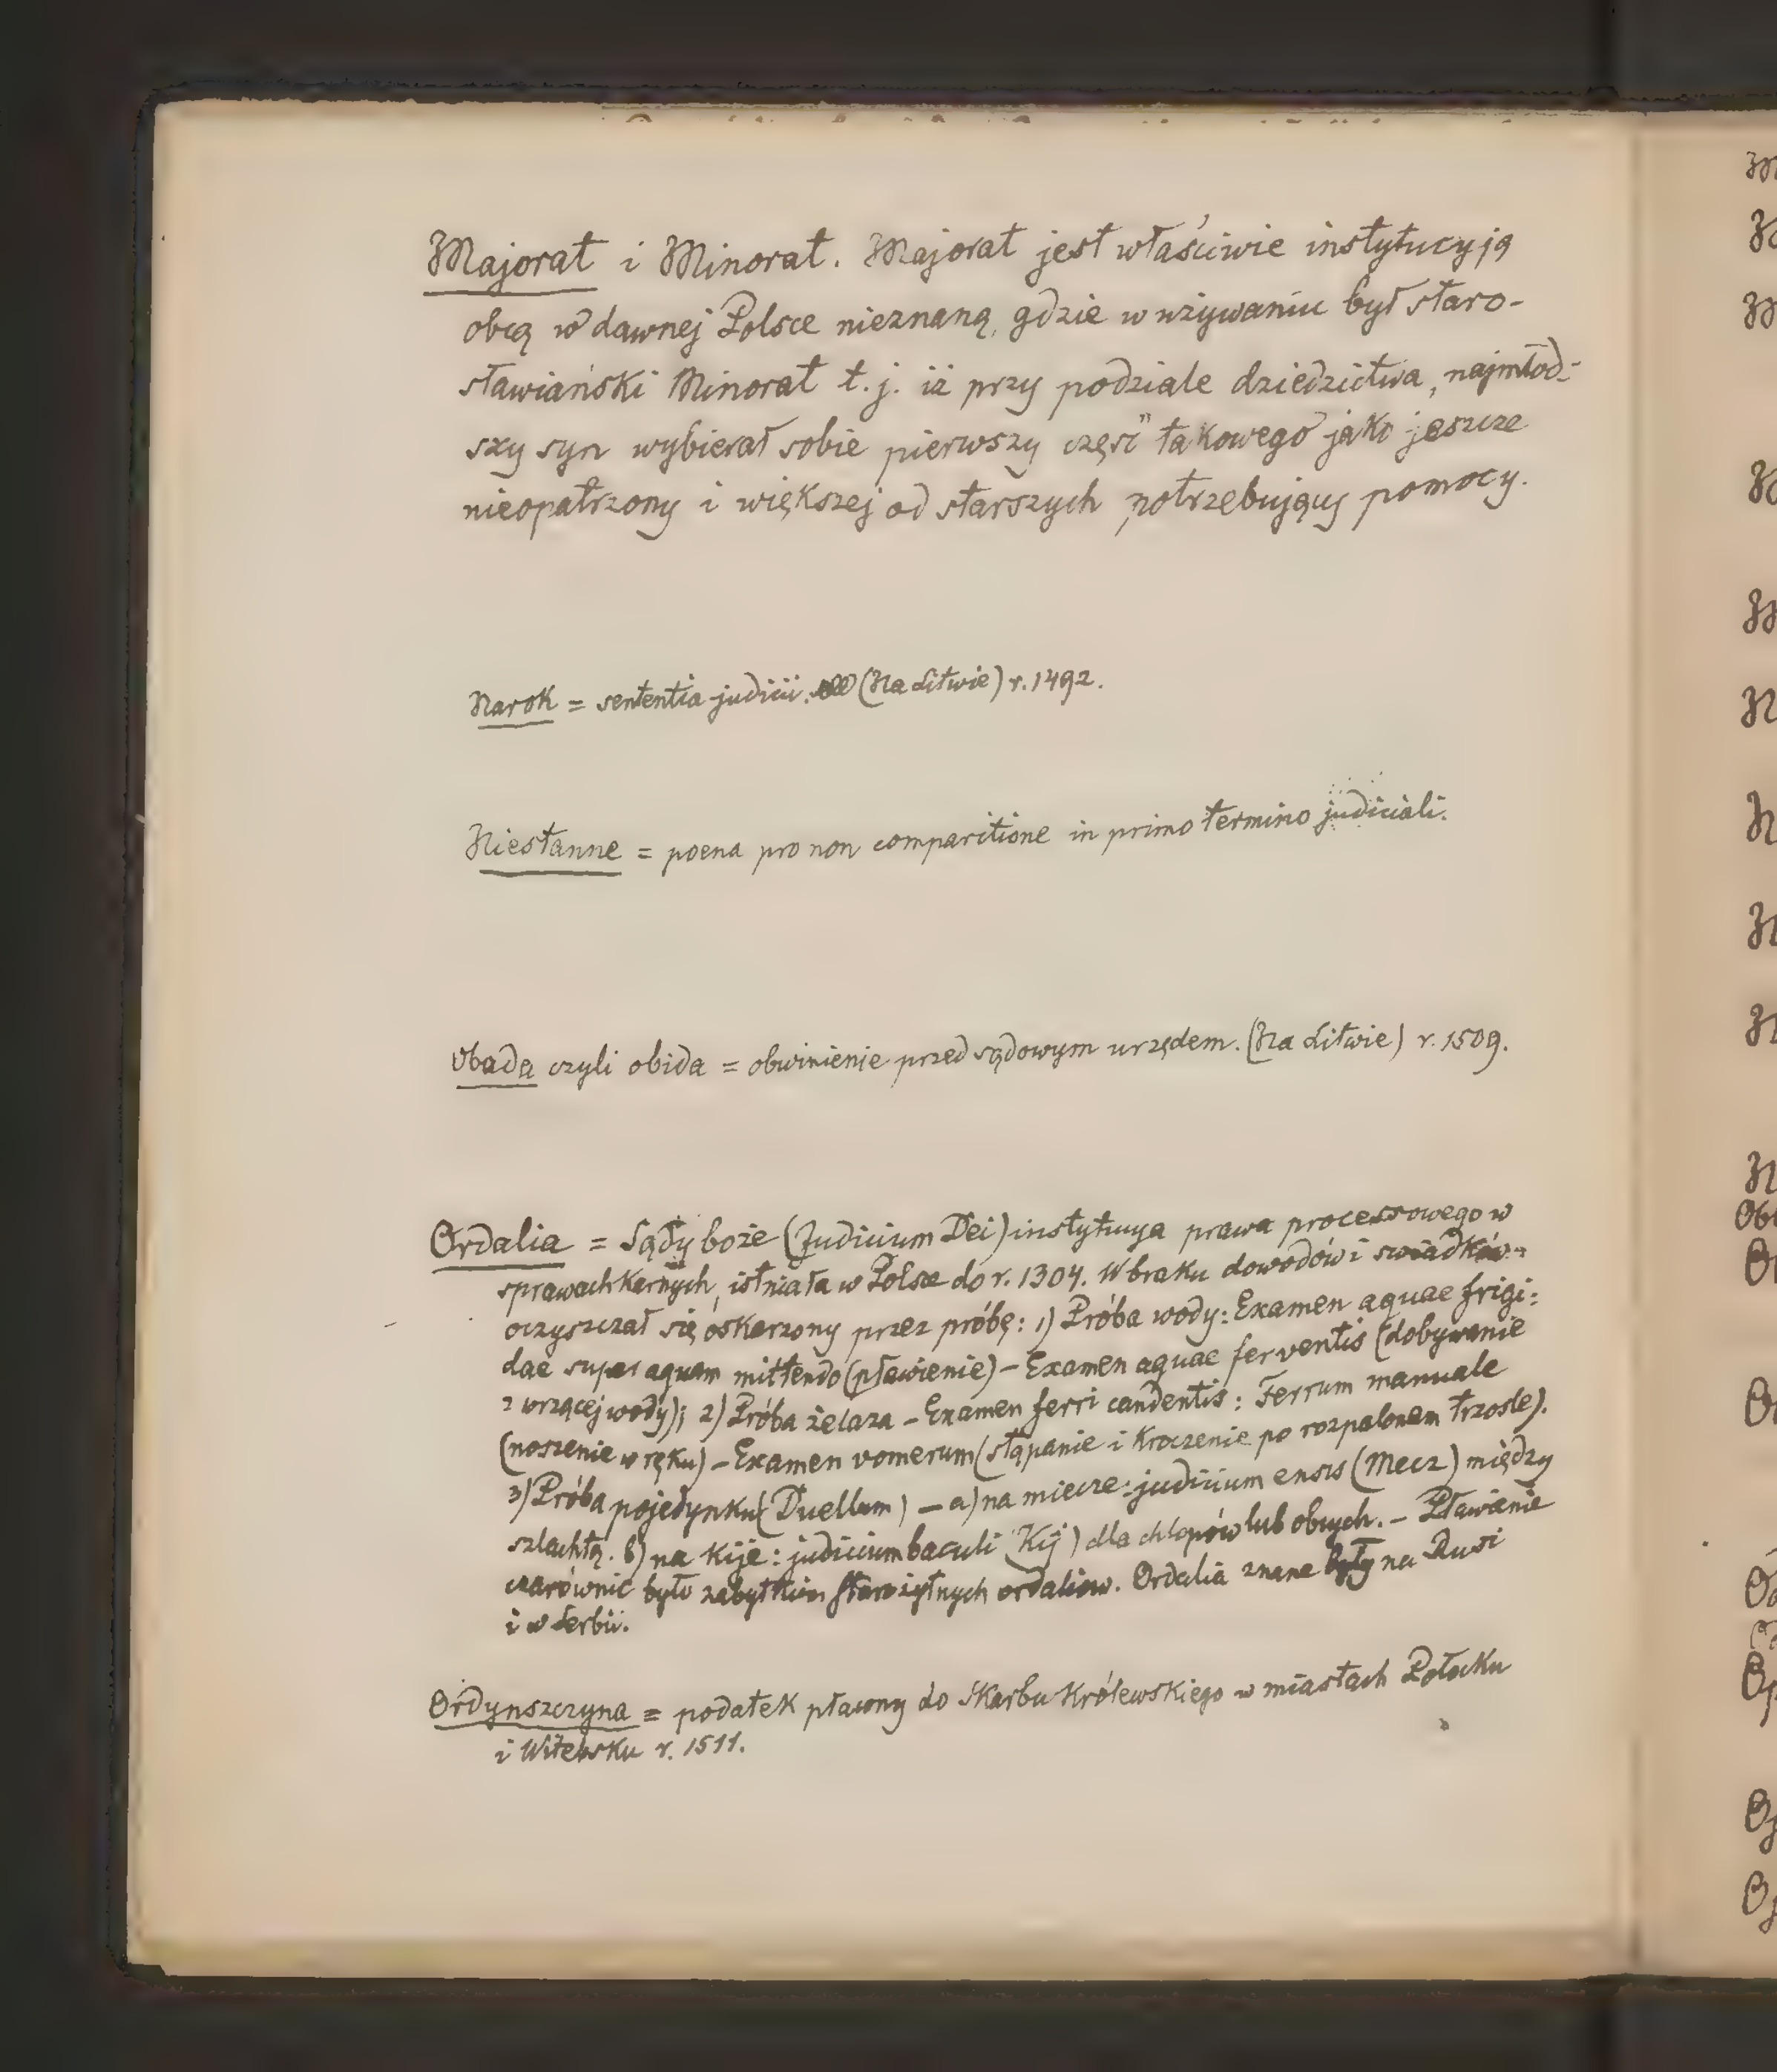 Majorat i Minorat. Majorat jest właściwie instytucyją
obcą w dawnej Polsce nieznaną, gdzie w używaniu był staro-
sławiański Minorat t.j. iż przy podziale dziedzictwa, najmłod-
szy syn wybierał sobie pierwszy część takowego jako jeszcze
nieopatrzony i większej od starszych potrzebujący pomocy.
Narok = sententia judicii. (Na Litwie) r. 1492.
Niestanne = poena pro non comparitione in primo termino judiciali.
Obada czyli obida = obwinienie przed sądowym urzędem. (Na Litwie) r. 1509.
Ordalia = Sądy boże (Judicium Dei) instytucya prawa processowego w
sprawach karnych, istniała w Polsce do r. 1304. W braku dowodów i swiadków
oczyszczał się oskarzony przez próbę: 1) Próba wody: Examen aquae frigi:
dae super aquam mittendo (pławienie) – Examen aquae ferventis (dobywanie
z wrzącej wody); 2) Próba żelaza – Examen ferri candentis: Ferrum manuale
(noszenie w ręku) – Examen vomerum (stąpanie i kroczenie po rozpalonem trzosle).
3) Próba pojedynku (Duellum) – a) na miecze: judicium ensis (Mecz) między
szlachtą. b) na kije: judicium baculi (Kij) dla chłopów lub obcych. – Pławienie
czarównic było zabytkiem starożytnych ordaliow. Ordalia znane były na Rusi
i w Serbii.
Ordynszczyna = podatek płacony do Skarbu Królewskiego w miastach Połocku
i Witebsku r. 1511.